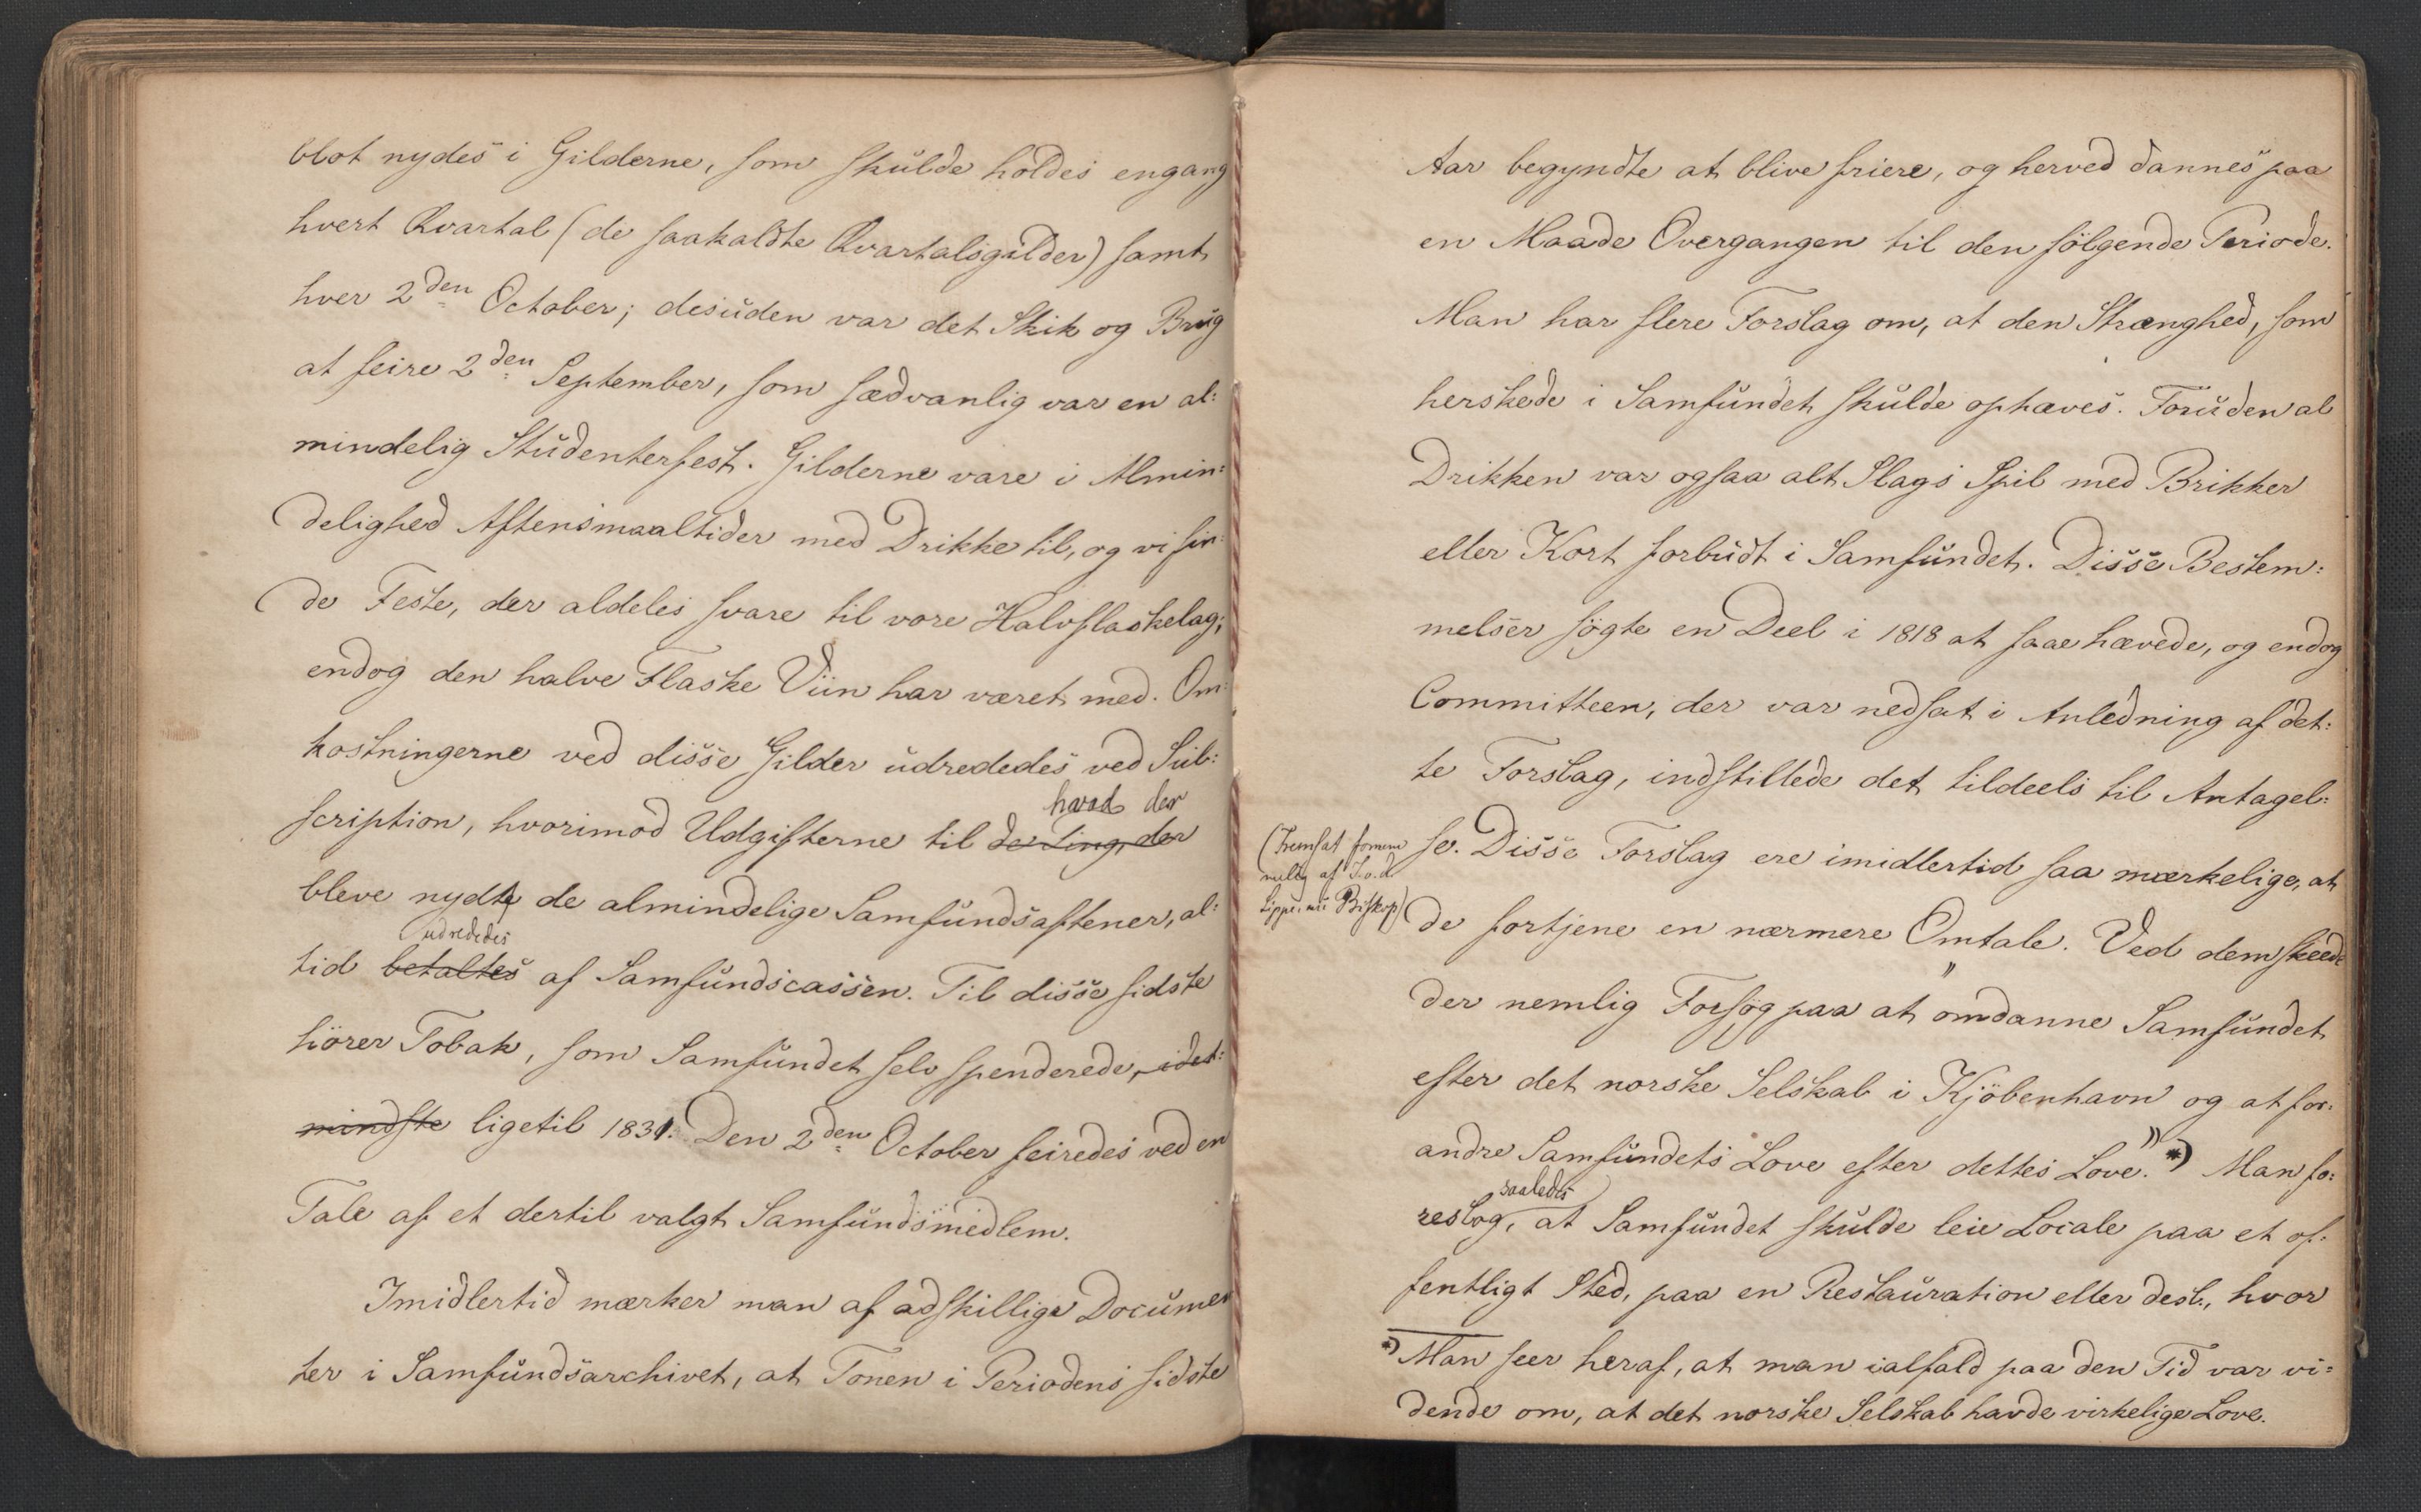 blot nydes i Gilderne, som skulde holdes engang
hvert Qvartal (de saakaldte Qvartalsgilder) samt
hver 2den October; desuden var det Skik og Brug
at feire 2den September, som sædvanlig var en al:
mindelig Studenterfest. Gilderne vare i Almin:
delighed Aftensmaaltider med Drikke til, og vi fin:
de Feste, der aldeles svare til vore Halvflaskelag;
endog den halve Flaske Viin har været med. Om:
kostningerne ved disse Gilder udrededes ved Sub:
hvad der
scription, hvorimod Udgifterne til de Ting, der
bleve nydt de almindelige Samfundsaftener, al:
udrededes
tid betaltes af Samfundscassen. Til disse sidste
hörer Tobak, som Samfundet selv spenderede, idet:
mindste ligetil 1831. Den 2den October feiredes ved en
Tale af et dertil valgt Samfundsmedlem.
Imidlertid mærker man af adskillige Documen
ter i Samfundsarchivet, at Tonen i Periodens sidste
Aar begyndte at blive friere, og herved dannes paa
en Maade Overgangen til den fölgende Periode.
Man har flere Forslag om, at den Strænghed, som
herskede i Samfundet skulde ophæves. Foruden al
Drikken var ogsaa alt Slags Spil med Brikker
eller Kort forbudt i Samfundet. Disse Bestem:
melser sögte en Deel i 1818 at faae hævede, og endog
Committeen, der var nedsat i Anledning af det:
te Forslag, indstillede det tildeels til Antagel:
(Fremsat fornem
melig af J. v. d.
Lippe, nu Biskop)
se. Disse Forslag ere imidlertid saa mærkelige, at
de fortjene en nærmere Omtale. Ved dem skeede
der nemlig Forsög paa at "omdanne Samfundet
efter det norske Selskab i Kjöbenhavn og at for:
andre Samfundets Love efter dettes Love." *) Man fo:
saaledes
reslog, at Samfundet skulde leie Locale paa et of:
fentligt Sted, paa en Restauration eller desl., hvor
*) Man seer heraf, at man ialfald paa den Tid var vi=
dende om, at det norske Selskab havde virkelige Love.